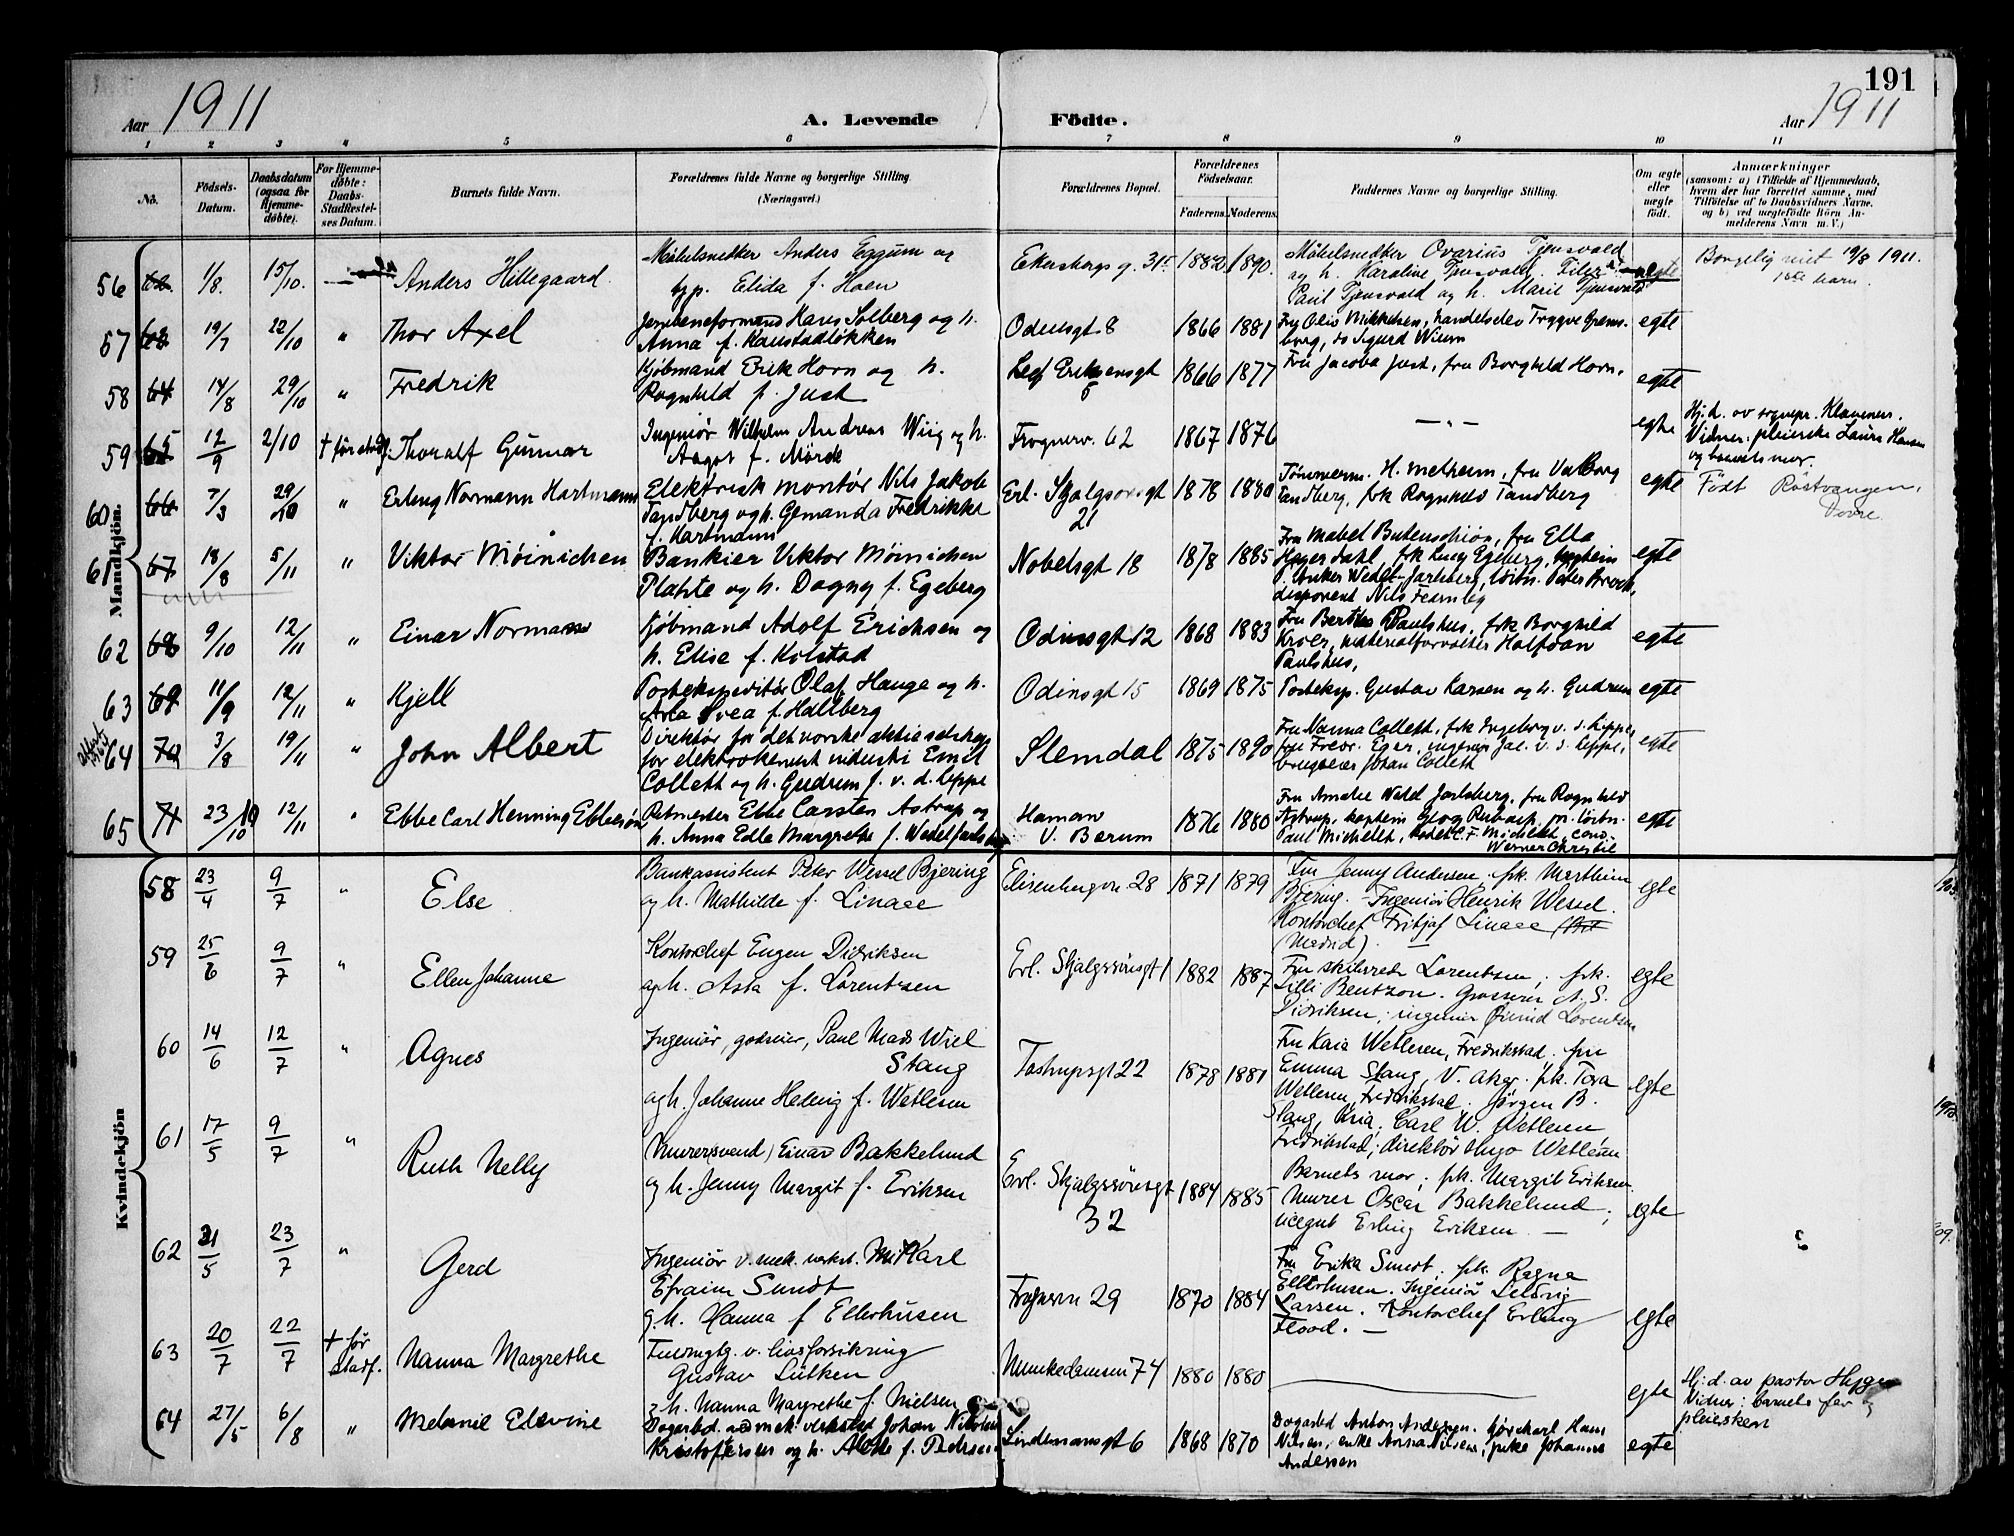 191
Aar 1911 A. Levende Födte. Aar 1911
1 2 3 4 5 6 7 8 9 10 11
No. Födsels-Datum. Daabsdatum (ogsaa for Hjemmedöbte). For Hjemmedöbte: Daabs-Stadfestelses Datum. Barnets fulde Navn. Forældrenes fulde Navne og borgerlige Stilling (Næringsvei.) Forældrenes Bopæl. Forældrenes Födselsaar. Faderens. Moderens. Faddernes Navne og borgerlige Stilling. Om ægte eller uægte födt. Anmærkninger (saasom: a) i Tilfælde af Hjemmedaab, hvem der har forrettet samme, med Tilföielse af to Daabsvidners Navne, og b) ved uegtefödte Börn Anmelderens Navn m. V.)
Mandkjön.
56 1/8. 15/10. Anders Hillegaard Møbelsnedker Anders Eggum og
Elida f. Hoen Ekersbergs g. 31 1882 1890. Møbelsnedker Ovarius Tjensvold
og h. Karoline Tjensvold.
Paul Tjensvold og h. Marie Tjensvold
Borgelig viet 19/8 1911.
1ste barn.
57 19/7 22/10 " Thor Axel Hans Solberg og h.
Anna f. Kaustadløkken Odinsgt 8 1866 1881 Fru Oliv Mikkelsen, handelselev Trygve
borg, do Sigurd Wium egte
58 64 14/8 29/10 " Fredrik Kjøbmand Erik Horn og h.
Ragnhild f. Just Leif Eriksensgt
5 1866 1877 Fru Jacoba Just, fru Borghild Horn, egte
59 65 12/9 2/10 + før stadf. Thoralf Gunnar Ingeniør Wilhelm Andreas Wiig og h.
Aagot f. Mørch Frognerv. 62 1867 1876 — " — egte Hj. d. av sognepr. Klaveness.
Vidner: pleierske Laura Hansen
og barnets mor.
60 66 7/3 29/10 " Erling Normann Hartmann Elektrisk montør Nils Jakob
Tandberg og h. Gemanda Fredrikke
f. Hartmann Erl. Skjalgsønsgt
21 1878 1880 Tømmerm. H. Melheim, fru Valborg
Tandberg, frk Ragnhild Tandberg egte Født Røstvangen,
Dovre.
61 67 18/8 5/11 " Viktor Møinichen Bankier Viktor Møinichen
Plahte og h. Dagny f. Egeberg Nobelsgt 18 1878 1885 Fru Mabel Butenschøn, fru Ella
Heyerdahl, frk Lucy Egeberg,
P. Anker Wedel-Jarlsberg, løitn. Peter Broch,
disponent Nils Fearnley egte
62 68 9/10 12/11 " Einar Normann Kjøbmand Adolf Ericksen og
h. Elise f. Kolstad Odinsgt 12 1868 1883 Fru Bertha Paulshus, frk Borghild
Kroer, materialforvalter Halfdan
Paulshus, egte
63 69 11/9 12/11 " Kjell Postekspeditør Olaf Hauge og h.
Svea f. Hallberg Odinsgt 15 1869 1875 Posteksp. Gustav Karsen og h. Gudrun egte
64 70 3/8 19/11 " John Albert Direktør for det norske aktieselskap
for elektrokemisk industri Emil
Collett og h. Gudrun f. v. d. Lippe Slemdal 1875 1890 Fru Nanna Collett, frk Ingeborg v. d. Lippe,
fru Fredr. Eger, ingeniør Jac. v. d. Lippe,
Johan Collett egte
65 71 23/10 12/11 " Ebbe Carl Henning Ebbesøn Ritmester Ebbe Carsten Astrup og
h. Anna Edle Margrethe f. Wedel Jarlsberg Haman
V. Bærum 1876 1880 Fru Amalie Wedel Jarlsberg, fru Ragnhild
Astrup, kaptein Georg
Paul Michelet, kadet C. F. Michelet, cand.
Werner Christie egte
Kvindekjön
58 23/4 9/7 " Else Bankassistent Peter Wessel Bjering
og h. Mathilde f. Linaae Eisenbergvn 28 1871 1879 Fru Jenny Andersen. frk. Marthine
Bjering. - Ingeniør Henrik Wessel.
Kontorchef Fritjof Linaae
(Madrid). — egte
59 25/6 9/7 " Ellen Johanne Kontorchef Eugen Didriksen
og h. Asta f. Lorentzen Erl. Skjalgssønsgt 1 1882 1887 Fru skibsreder Lorentzen; frk.
Lilli Bentzon. Grosserer A. S.
Didriksen; ingeniør Øivind Lorentzen egte
60 14/6 12/7 " Agnes Ingeniør, godseier, Paul Mads Wiel
Stang
og h. Johanne Helvig f. Wetlesen Tostrupsgt 22 1878 1881 Fru Kaia Wetlesen, Fredrikstad. fru
Emma Stang, V. Aker. frk. Tora
Wetlesen, Fredrikstad. Jørgen B.
Stang, Kria; Carl W. Wetlesen
Fredrikstad; direktør Hugo Wetlesen egte
61 17/5 9/7 " Ruth Nelly Murersvend Einar Bakkelund
og h. Jenny Margit f. Eriksen Erl. Skjalgssønsgt
32 1884 1885 Barnets mor; frk. Margit Eriksen.
Murer Oscar Bakkelund;
visegut Erling Eriksen. — egte
62 21/5 23/7 " Gerd Ingeniør v. mek. verkst. Karl
Efraim Sundt
g. h. Hanna f Ellerhusen Frognervn 29 1870 1884 Fru Erika Sundt. frk. Ragna
Ellerhusen. Ingeniør Ludvig
Larsen. Kontorchef Erling
Flood. — egte
63 20/7 22/7 + før
stadf. Nanna Margrethe Fuldmgtg. v. livsforsikring
Gustav Lütken
g. h. Nanna Margrethe f. Nielsen Munkedamsvn 74 1880 1880 egte Hj. d. av pastor
Vidner: barnets far og
pleiersken
64 27/5 6/8 " Melanie Elevine Dagarbd. ved mek. verksted Johan Nikolai
Kristoffersen og h. f. Pedersen Lindemansgt 6 1868 1870 Dagarbd Anton Andersen. kjørekarl Hans
Nilsen, enke Anna Nilsen, pike Johanne
Andersen egte